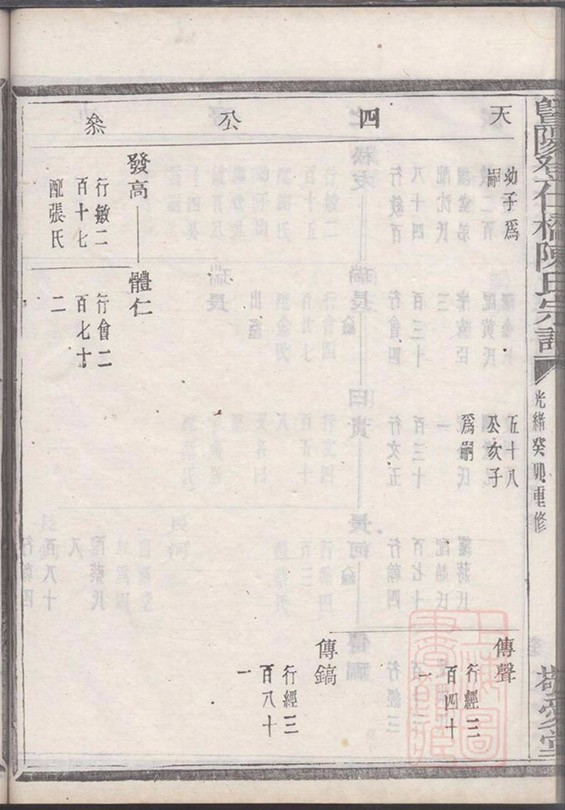 暨陽登仕橋陳氏宗譜
光緒癸卯重修
敬愛堂
天
四
公
叅
幼子爲
嗣
五十八
公次子
爲嗣
傳聲
行經三
百四十
一
傳鎬
行經三
百八十
一
發高
行敏二
百十七
配張氏
體仁
行會二
百七十
二